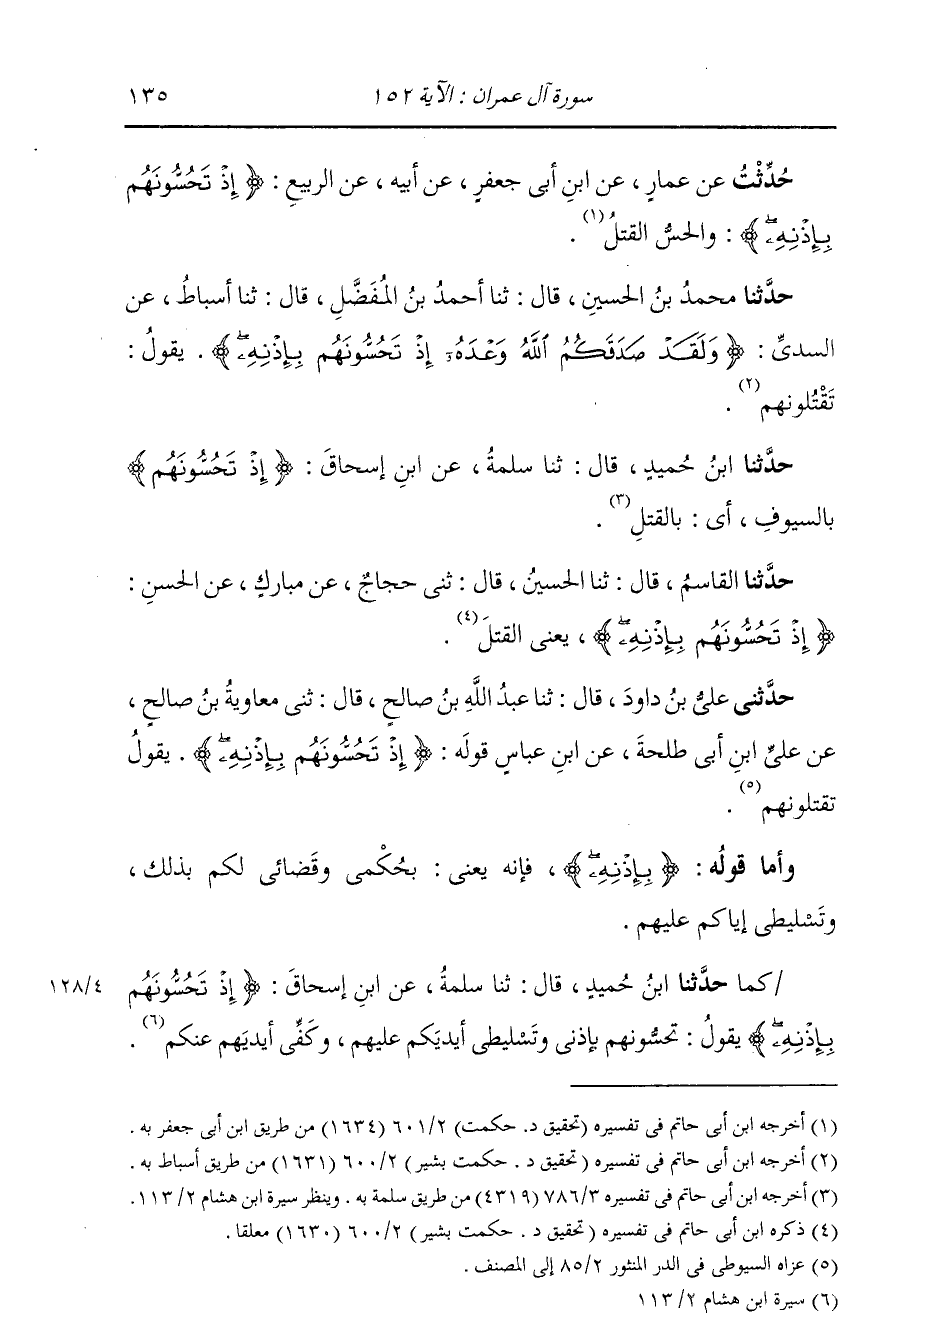 سورة آل عمران : الآية ١٥٢ ١٣٥
حُدِّثْتُ عن عمارٍ ، عن ابنِ أبى جعفرٍ ، عن أبيه ، عن الربيعِ : ﴿ إِذْ تَحُسُّونَهُم
بِإِذْنِهِۦۖ ﴾ : والحسُّ القتلُ(١) .
حدَّثنا محمدُ بنُ الحسينِ ، قال : ثنا أحمدُ بنُ المُفَضَّلِ ، قال : ثنا أسباطُ ، عن
السدىِّ : ﴿ وَلَقَدْ صَدَقَكُمُ ٱللَّهُ وَعْدَهُۥٓ إِذْ تَحُسُّونَهُم بِإِذْنِهِۦۖ ﴾ . يقولُ :
تَقْتُلونهم(٢) .
حدَّثنا ابنُ حُميدٍ ، قال : ثنا سلمةُ ، عن ابنِ إسحاقَ : ﴿ إِذْ تَحُسُّونَهُم ﴾
بالسيوفِ ، أى : بالقتلِ(٣) .
حدَّثنا القاسمُ ، قال : ثنا الحسينُ ، قال : ثنى حجاجٌ ، عن مباركٍ ، عن الحسنِ :
﴿ إِذْ تَحُسُّونَهُم بِإِذْنِهِۦۖ ﴾ ، يعنى القتلَ(٤) .
حدَّثنى علىُّ بنُ داودَ ، قال : ثنا عبدُ اللَّهِ بنُ صالحٍ ، قال : ثنى معاويةُ بنُ صالحٍ ،
عن علىِّ ابنِ أبى طلحةَ ، عن ابنِ عباسٍ قولَه : ﴿ إِذْ تَحُسُّونَهُم بِإِذْنِهِۦۖ ﴾ . يقولُ
تقتلونهم(٥) .
وأما قولُه : ﴿ بِإِذْنِهِۦۖ ﴾ ، فإنه يعنى : بحُكْمى وقَضائى لكم بذلك ،
وتَسْليطى إياكم عليهم .
/كما حدَّثنا ابنُ حُميدٍ ، قال : ثنا سلمةُ ، عن ابنِ إسحاقَ : ﴿ إِذْ تَحُسُّونَهُم ١٢٨/٤
بِإِذْنِهِۦۖ ﴾ يقولُ : تحسُّونهم بإذنى وتَسْليطى أيديَكم عليهم ، وكَفِّى أيديَهم عنكم(٦) .
(١) أخرجه ابن أبى حاتم فى تفسيره (تحقيق د. حكمت) ٦٠١/٢ (١٦٣٤) من طريق ابن أبى جعفر به .
(٢) أخرجه ابن أبى حاتم فى تفسيره ( تحقيق د . حكمت بشير ) ٦٠٠/٢ (١٦٣١) من طريق أسباط به .
(٣) أخرجه ابن أبى حاتم فى تفسيره ٧٨٦/٣ (٤٣١٩) من طريق سلمة به . وينظر سيرة ابن هشام ١١٣/٢.
(٤) ذكره ابن أبى حاتم فى تفسيره ( تحقيق د . حكمت بشير ) ٦٠٠/٢ (١٦٣٠) معلقا .
(٥) عزاه السيوطى فى الدر المنثور ٨٥/٢ إلى المصنف .
(٦) سيرة ابن هشام ١١٣/٢